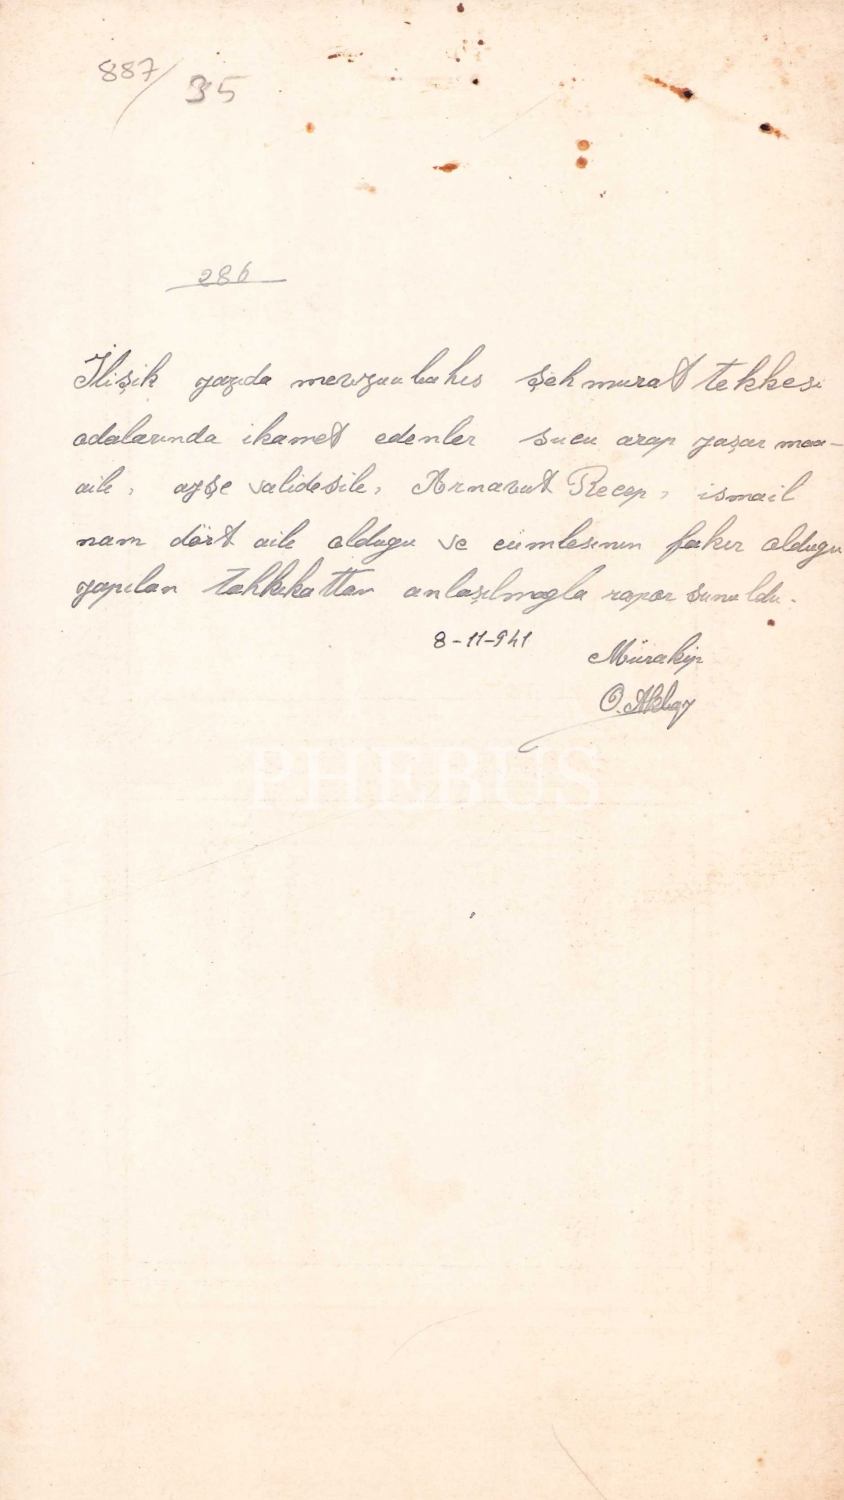 887/35
286
İlişik yazıda mevzuubahis Şehmurat tekkesi
odalarında ikamet edenler sucu arap yaşar maa-
aile, ayşe validesile, Arnavut Recep, ismail
nam dört aile oldugu ve cümlesının fakır oldugu
yapılan tahkikattan anlaşılmagla rapor sunuldu.
8-11-941
Mürakip
O. Akbay
PHEBUS